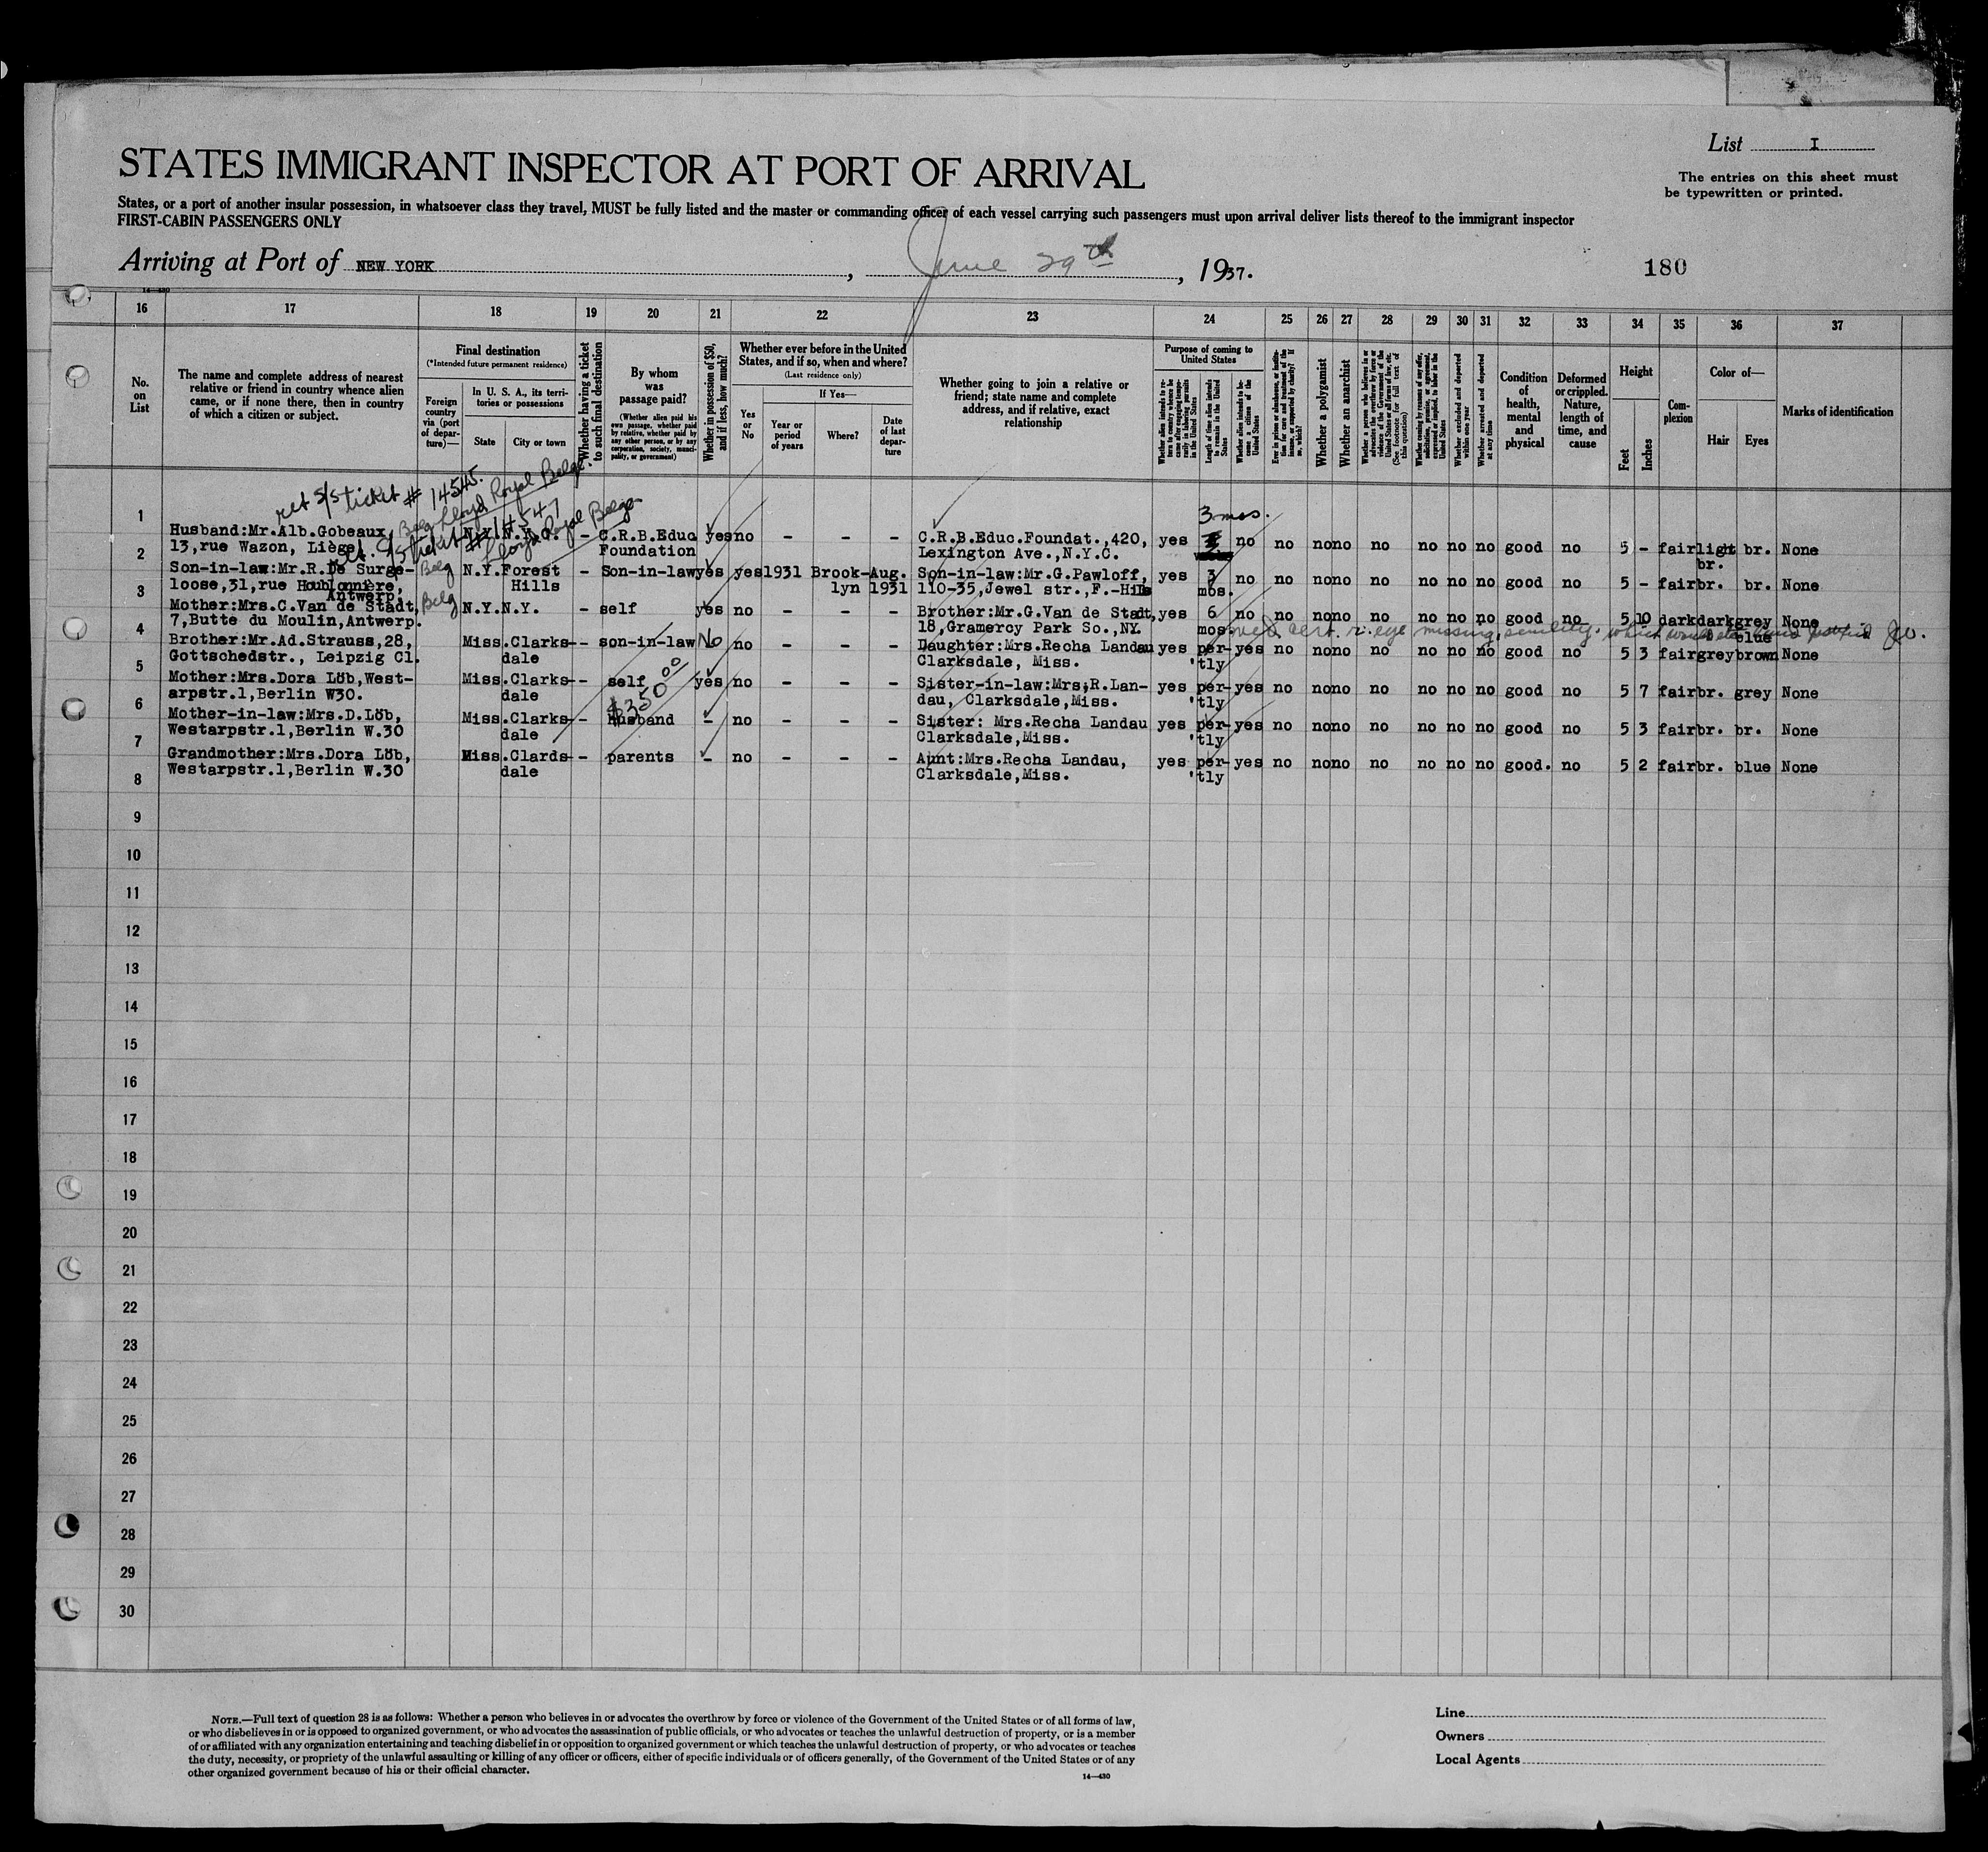 List I
STATES IMMIGRANT INSPECTOR AT PORT OF ARRIVAL
The entries on this sheet must
be typewritten or printed.
States, or a port of another insular possession, in whatsoever class they travel, MUST be fully listed and the master or commanding officer of each vessel carrying such passengers must upon arrival deliver lists thereof to the immigrant inspector
FIRST-CABIN PASSENGERS ONLY
Arriving at Port of NEW YORK, June 29th, 1937.
180
14-430
16 17 18 19 20 21 22 23 24 25 26 27 28 29 30 31 32 33 34 35 36 37
No. on List
The name and complete address of nearest
relative or friend in country whence alien
came, or if none there, then in country
of which a citizen or subject.
Final destination
(*Intended future permanent residence)
Foreign country via (port of departure)—
In U. S. A., its territories or possessions
State
City or town
Whether having a ticket to such final destination
By whom was passage paid?
(Whether alien paid his own passage, whether paid by relative, whether paid by any other person, or by any corporation, society, municipality, or government)
Whether in possession of $50, and if less, how much?
Whether ever before in the United
States, and if so, when and where?
(Last residence only)
Yes or No
If Yes—
Year or period of years
Where?
Date of last departure
Whether going to join a relative or
friend; state name and complete
address, and if relative, exact
relationship
Purpose of coming to United States
Whether alien intends to return to country whence he came after engaging temporarily in laboring pursuits in the United States
Length of time alien intends to remain in the United States
Whether alien intends to become a citizen of the United States
Ever in prison or almshouse, or institution for care and treatment of the insane, or supported by charity? If so, which?
Whether a polygamist
Whether an anarchist
Whether a person who believes in or advocates the overthrow by force or violence of the Government of the United States or all forms of law, etc. (See footnote for full text of this question)
Whether coming by reasons of any offer, solicitation, promise, or agreement, expressed or implied, to labor in the United States
Whether excluded and deported within one year
Whether arrested and deported at any time
Condition of health, mental and physical
Deformed or crippled. Nature, length of time, and cause
Height
Feet
Inches
Complexion
Color of—
Hair
Eyes
Marks of identification
ret s/s ticket # 14545.
Lloyd Royal Belge
ticket # 14547
Lloyd Royal Belge
3 mos.
1
Husband:Mr.Alb.Gobeaux, Belg N.Y. N.Y.C. - C.R.B.Educ yes no - - - C.R.B.Educ.Foundat.,420, yes no no no no no no no no good no 5 - fair light br. None
13,rue Wazon, Liège Foundation Lexington Ave.,N.Y.C. br.
2
Son-in-law:Mr.R.De Surge- Belg N.Y. Forest - Son-in-law yes yes 1931 Brook- Aug. Son-in-law:Mr.G.Pawloff, yes 3 no no no no no no no no good no 5 - fair br. br. None
loose,31,rue Houblonnière, Hills lyn 1931 110-35,Jewel str.,F.-Hills mos.
Antwerp.
3
Mother:Mrs.C.Van de Stadt, Belg N.Y. N.Y. - self yes no - - - Brother:Mr.G.Van de Stadt, yes 6 no no no no no no no no good no 5 10 dark dark grey None
7,Butte du Moulin,Antwerp. 18,Gramercy Park So.,NY. mos.
med. cert. r. eye missing, senility.
4
Brother:Mr.Ad.Strauss,28, Miss. Clarks- - son-in-law No no - - - Daughter:Mrs.Recha Landau yes per- yes no no no no no no no good no 5 3 fair grey brown None
blue
Gottschedstr., Leipzig Cl. dale Clarksdale, Miss. 'tly
5
Mother:Mrs.Dora Löb,West- Miss. Clarks- - self yes no - - - Sister-in-law:Mrs.R.Lan- yes per- yes no no no no no no no good no 5 7 fair br. grey None
arpstr.1,Berlin W30. dale dau, Clarksdale,Miss. 'tly
$350 00
6
Mother-in-law:Mrs.D.Löb, Miss. Clarks- - Husband - no - - - Sister: Mrs.Recha Landau yes per- yes no no no no no no no good no 5 3 fair br. br. None
Westarpstr.1,Berlin W.30 dale Clarksdale,Miss. 'tly
7
Grandmother:Mrs.Dora Löb, Miss. Clards- - parents - no - - - Aunt:Mrs.Recha Landau, yes per- yes no no no no no no no good. no 5 2 fair br. blue None
Westarpstr.1,Berlin W.30 dale Clarksdale,Miss. 'tly
8
9
10
11
12
13
14
15
16
17
18
19
20
21
22
23
24
25
26
27
28
29
30
NOTE.—Full text of question 28 is as follows: Whether a person who believes in or advocates the overthrow by force or violence of the Government of the United States or of all forms of law,
or who disbelieves in or is opposed to organized government, or who advocates the assassination of public officials, or who advocates or teaches the unlawful destruction of property, or is a member
of or affiliated with any organization entertaining and teaching disbelief in or opposition to organized government or which teaches the unlawful destruction of property, or who advocates or teaches
the duty, necessity, or propriety of the unlawful assaulting or killing of any officer or officers, either of specific individuals or of officers generally, of the Government of the United States or of any
other organized government because of his or their official character.
14-430
Line
Owners
Local Agents